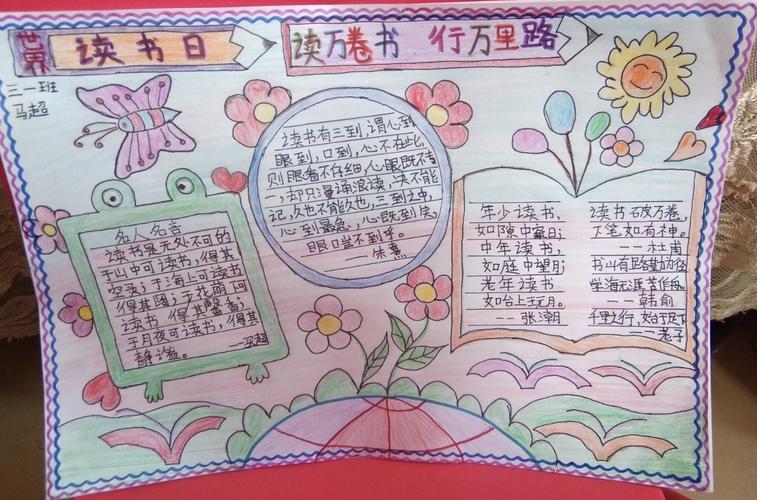 世界读书日
读万卷书 行万里路
三一班
马超
名人名言
读书是无处不可的
于山中可读书，得其
空灵；于海上可读书
得其阔；于花荫间
读书，得其馨香；
于月夜可读书，得其
静谧。
读书有三到，谓心到
眼到，口到，心不在此，
则眼看不仔细，心眼既不专
一，却只漫诵浪读，决不能
记，久也不能久也，三到之中，
心到最急，心既到矣
眼口岂不到乎。
——朱熹
年少读书，
如隙中窥日；
中年读书，
如庭中望月；
老年读书
如台上玩月。
——张潮
读书破万卷，
下笔如有神。
——杜甫
书山有路勤为径
学海无涯苦作舟
——韩俞
千里之行，始于足下
——老子